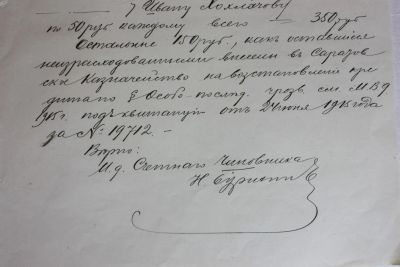 7 Ивану Хохлачову
по 50 руб каждому всего 350 руб
Остальные 150 руб., какъ оставшiеся
неизрасходованными внесены въ Саратов
ское Казначейство на возстановленiе кре
дита по § Особо-послѣд. чрезв. см. М.В.Д
1915 г. подъ квитанцiй отъ 24 июня 1915 года
за № 19712. –
Вѣрно:
И. д. Счетнаго Чиновника
Н.